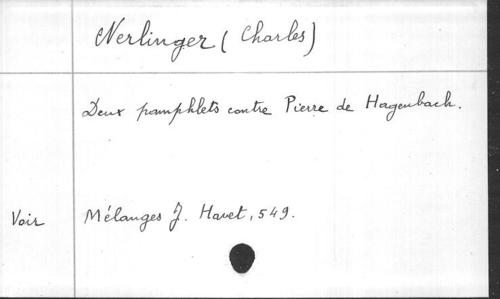 Nerlinger (Charles)
Deux pamphlets contre Pierre de Hagenbach.
Voir Mélanges J. Havet, 549.